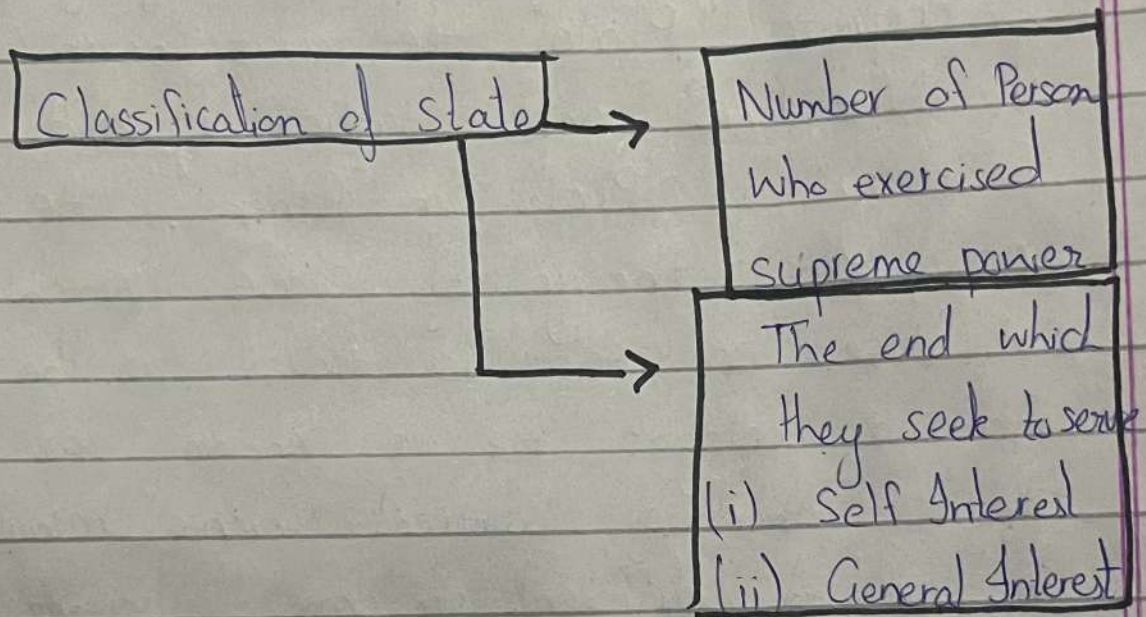 Classification of state
Number of Person
who exercised
supreme power
The end which
they seek to serve
(i) Self Interest
(ii) General Interest